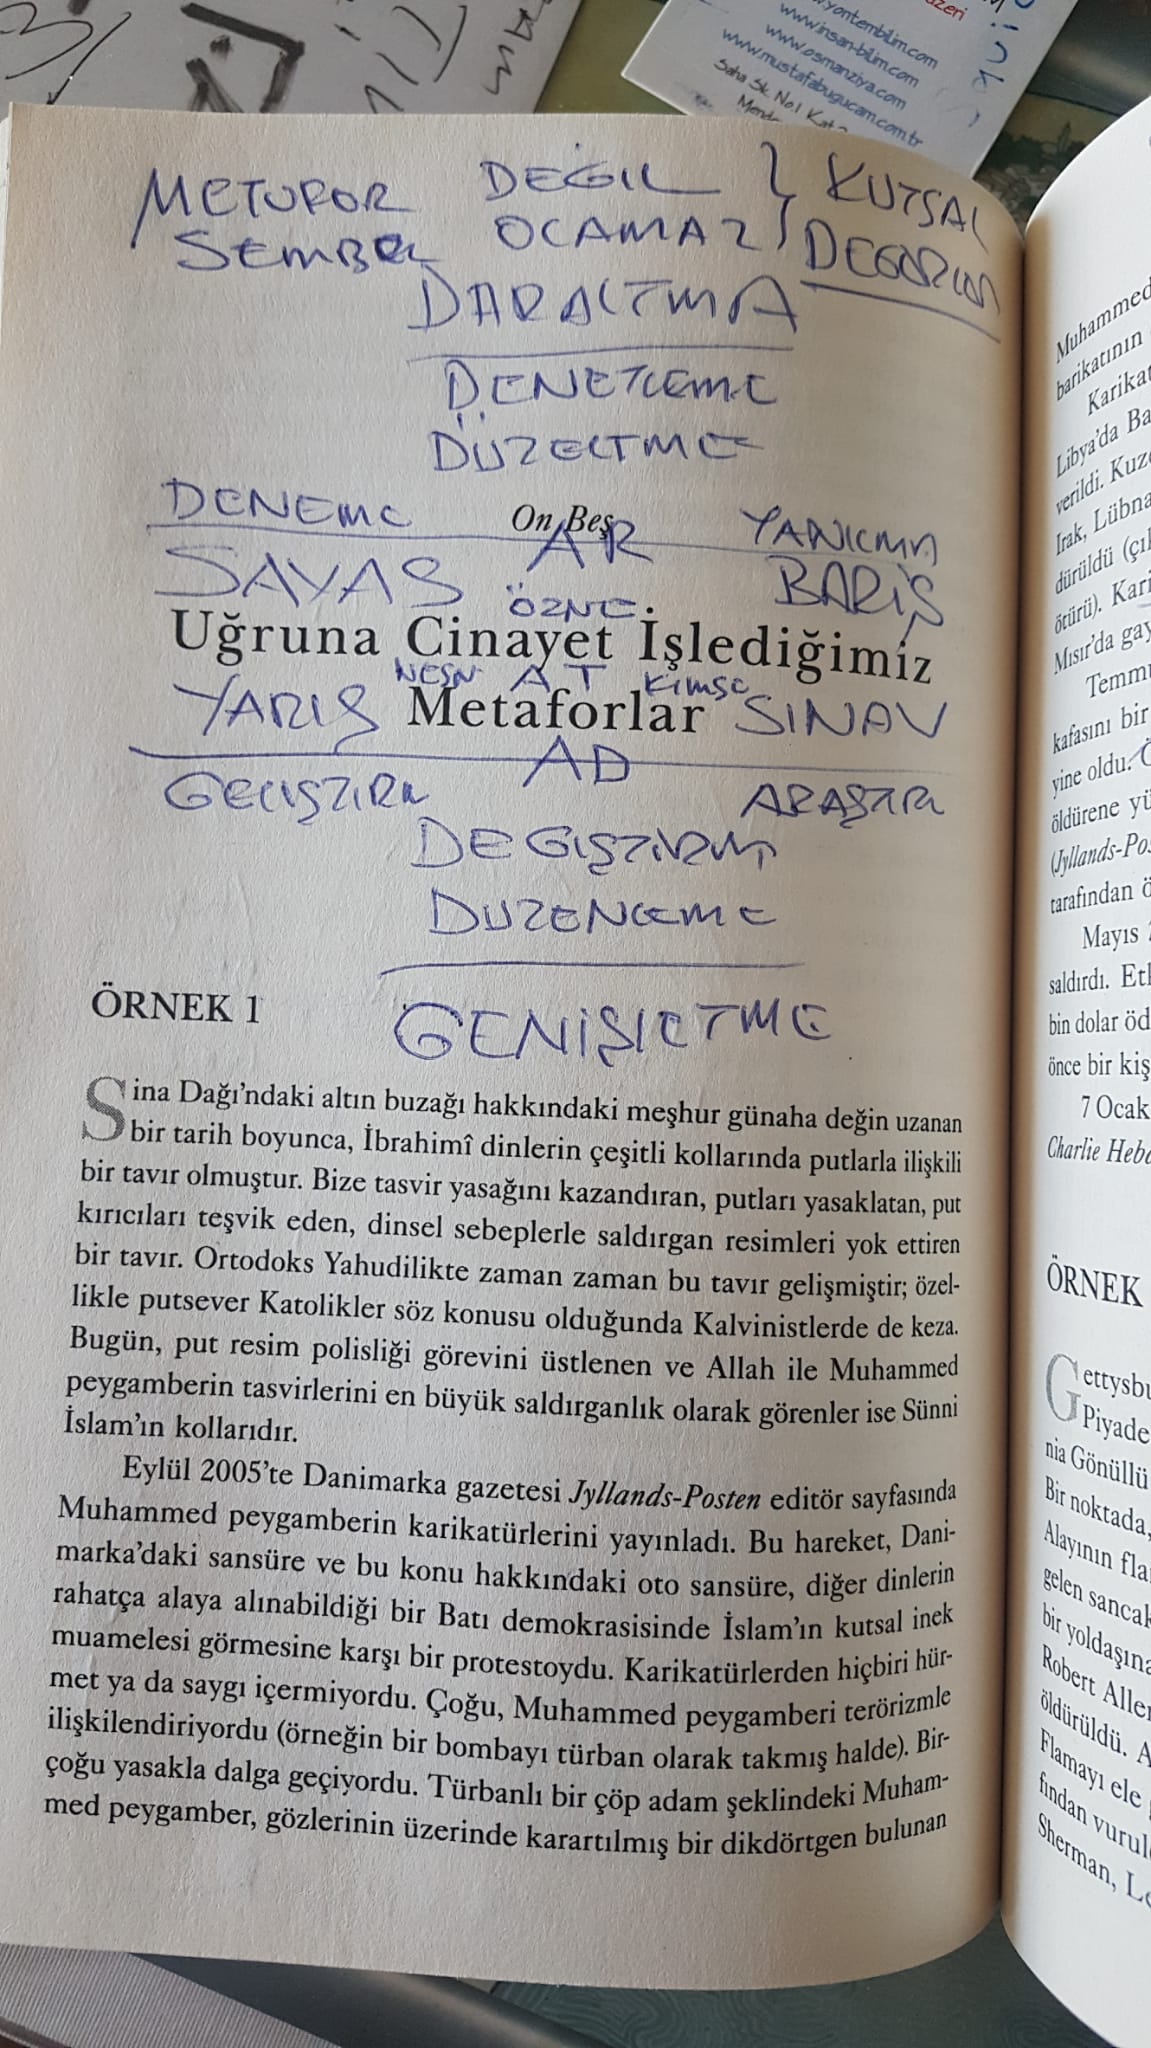 www.yontembilim.com
www.insan-bilim.com
www.osmanziya.com
www.mustafabugucam.com.tr
Saha Sk. No.1 Kat
METUFOR DEĞİL } KUTSAL
SEMBOL OLAMAZ
DARALTMA
DENETLEME
DÜZELTME
DENEME On Beş YANILMA
AR
SAVAŞ BARIŞ
ÖZNE
Uğruna Cinayet İşlediğimiz
NESN A.T KİMSE
YARIŞ Metaforlar SINAV
AD
GELİŞTİRM ARAŞTIRM
DEĞİŞTİRME
DUZENLEME
GENİŞLETME
ÖRNEK 1
Sina Dağı'ndaki altın buzağı hakkındaki meşhur günaha değin uzanan
bir tarih boyunca, İbrahimî dinlerin çeşitli kollarında putlarla ilişkili
bir tavır olmuştur. Bize tasvir yasağını kazandıran, putları yasaklatan, put
kırıcıları teşvik eden, dinsel sebeplerle saldırgan resimleri yok ettiren
bir tavır. Ortodoks Yahudilikte zaman zaman bu tavır gelişmiştir; özel-
likle putsever Katolikler söz konusu olduğunda Kalvinistlerde de keza.
Bugün, put resim polisliği görevini üstlenen ve Allah ile Muhammed
peygamberin tasvirlerini en büyük saldırganlık olarak görenler ise Sünni
İslam'ın kollarıdır.
Eylül 2005'te Danimarka gazetesi Jyllands-Posten editör sayfasında
Muhammed peygamberin karikatürlerini yayınladı. Bu hareket, Dani-
marka'daki sansüre ve bu konu hakkındaki oto sansüre, diğer dinlerin
rahatça alaya alınabildiği bir Batı demokrasisinde İslam'ın kutsal inek
muamelesi görmesine karşı bir protestoydu. Karikatürlerden hiçbiri hür-
met ya da saygı içermiyordu. Çoğu, Muhammed peygamberi terörizmle
ilişkilendiriyordu (örneğin bir bombayı türban olarak takmış halde). Bir-
çoğu yasakla dalga geçiyordu. Türbanlı bir çöp adam şeklindeki Muham-
med peygamber, gözlerinin üzerinde karartılmış bir dikdörtgen bulunan
Muhammed
barikatının
Karikat
Libya'da Ba
verildi. Kuze
Irak, Lübna
dürüldü (çık
ötürü). Kari
Mısır'da gay
Temmu
kafasını bir
yine oldu.
öldürene yü
(Jyllands-Pos
tarafından ö
Mayıs
saldırdı. Etk
bin dolar öd
önce bir kiş
7 Ocak
Charlie Hebd
ÖRNEK
Gettysbu
Piyade
nia Gönüllü
Bir noktada,
Alayının fla
gelen sancak
bir yoldaşına
Robert Aller
öldürüldü. A
Flamayı ele
fından vurul
Sherman, Le